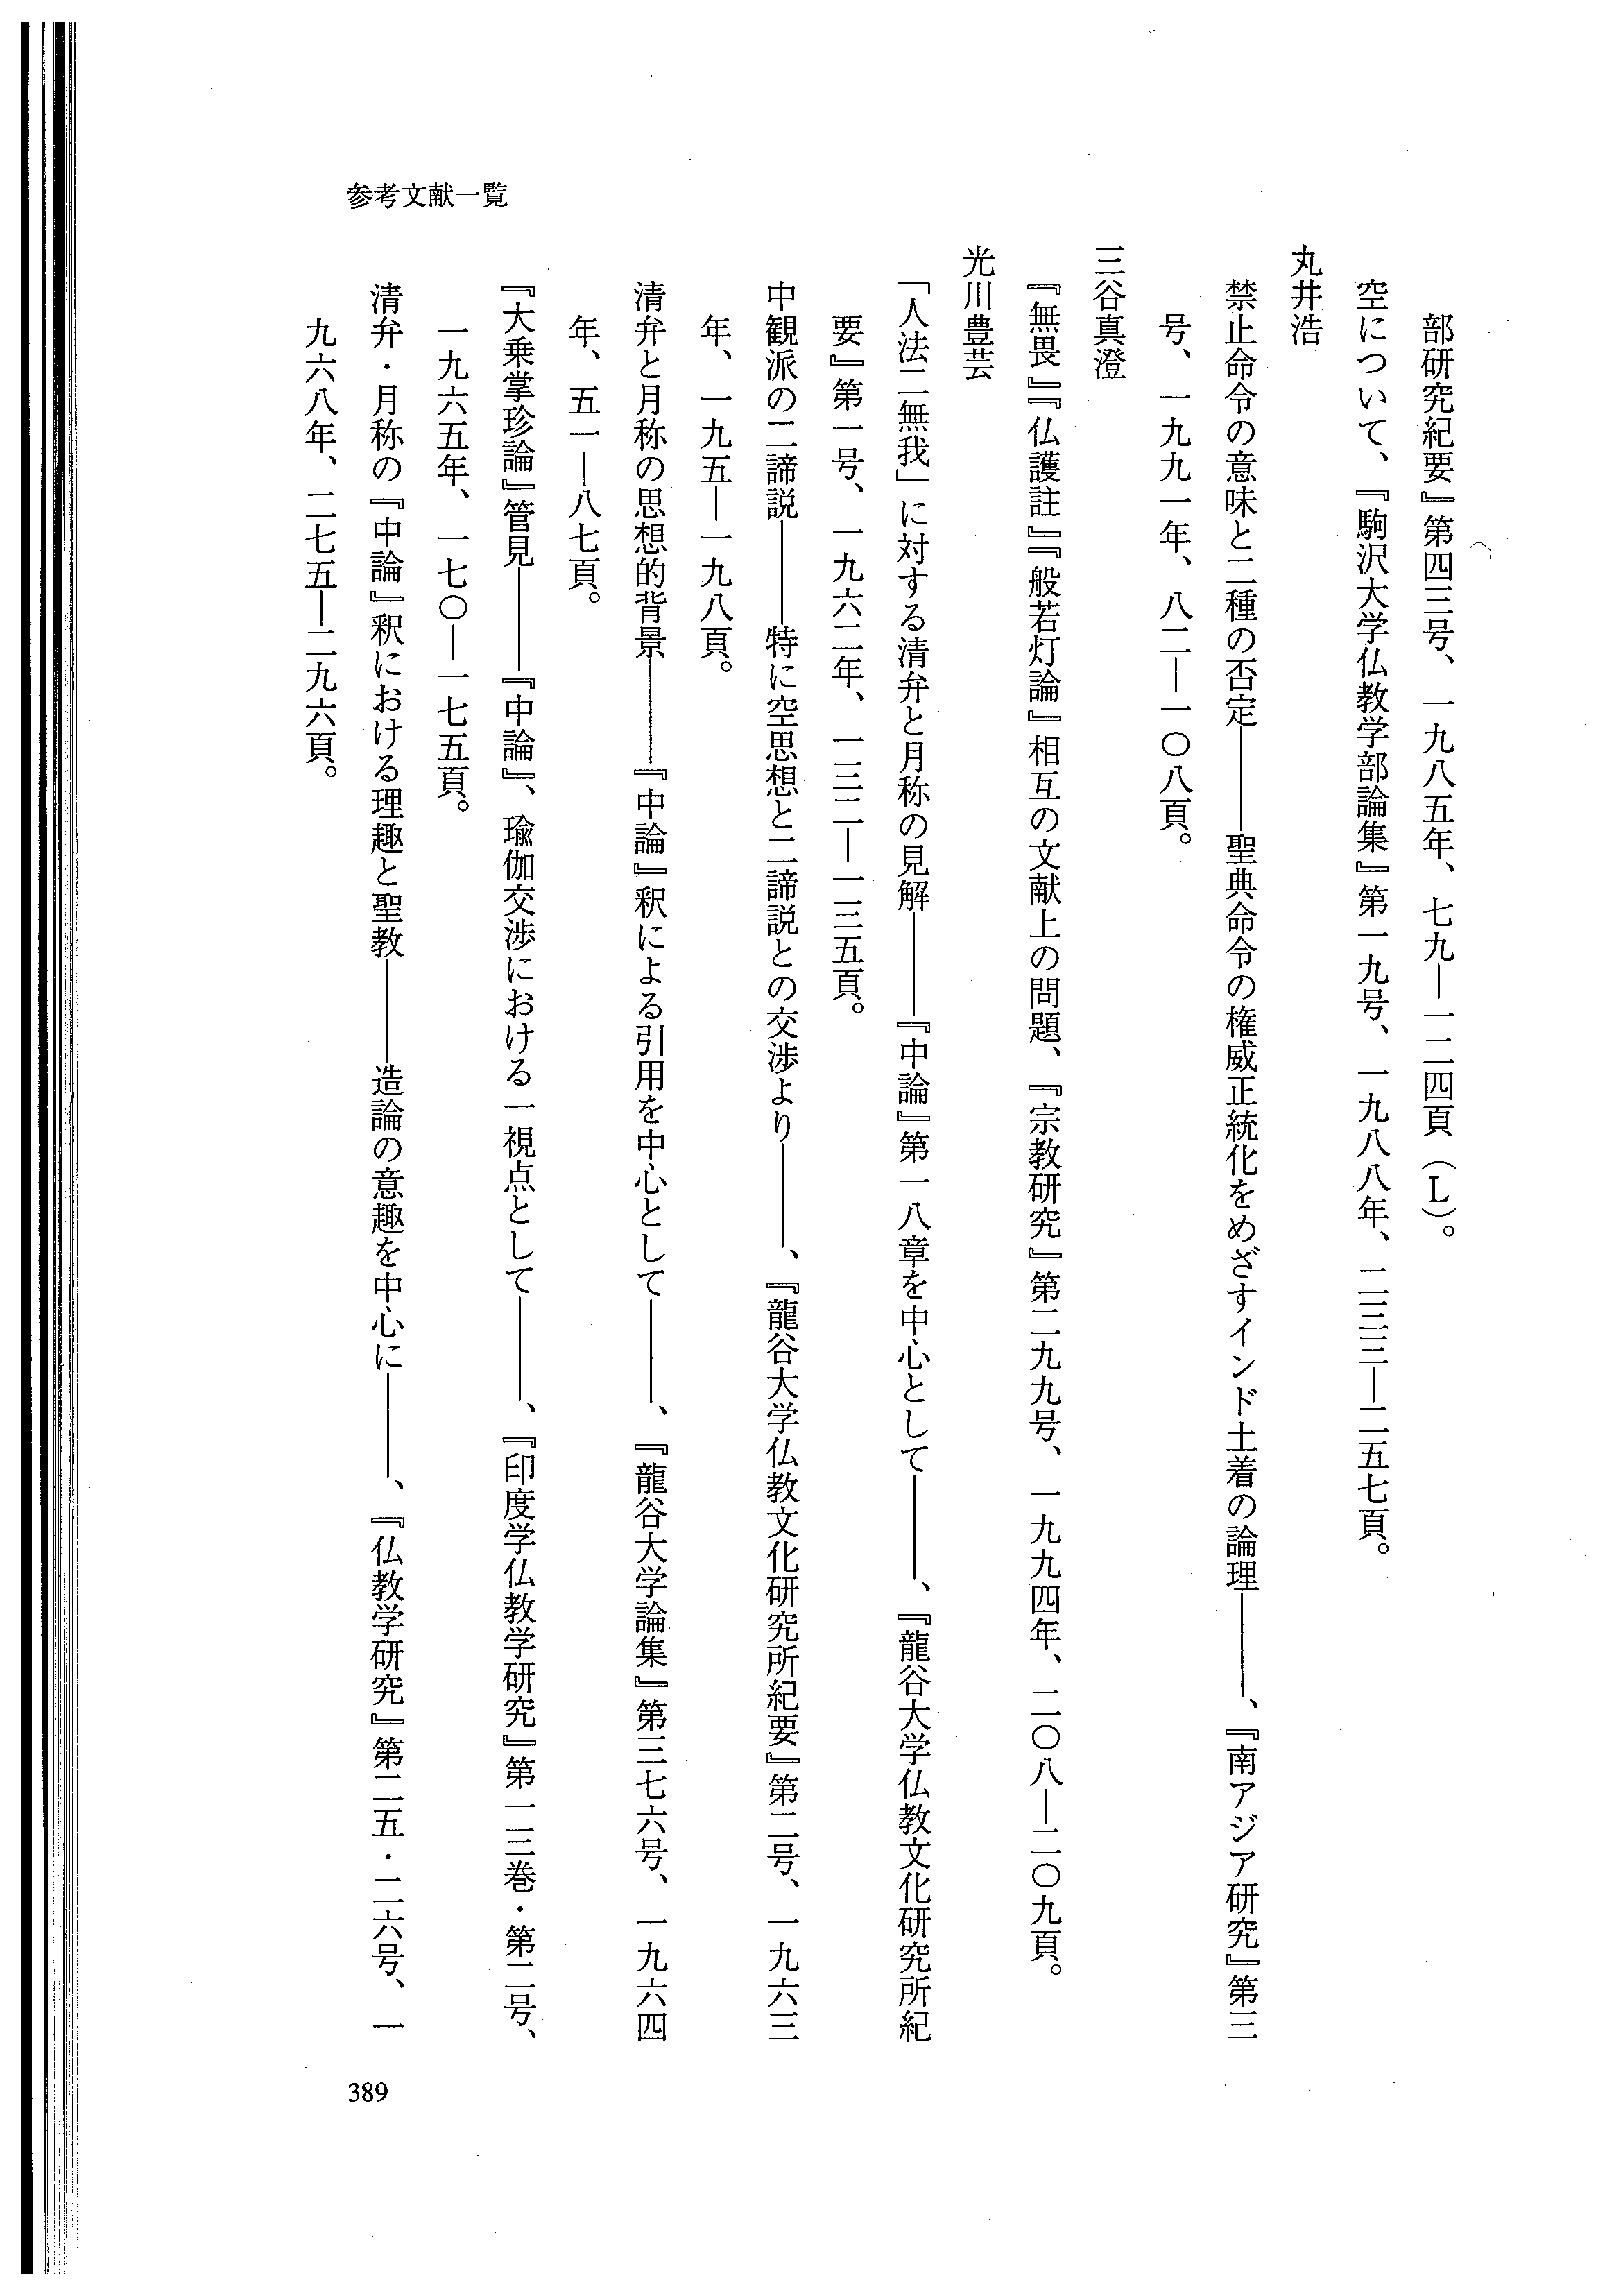 参考文献一覧
部研究紀要』第四三号、一九八五年、七九―一二四頁（L）。
空について、『駒沢大学仏教学部論集』第一九号、一九八八年、二三三―二五七頁。
丸井浩
禁止命令の意味と二種の否定――聖典命令の権威正統化をめざすインド土着の論理――、『南アジア研究』第三
号、一九九一年、八二―一〇八頁。
三谷真澄
『無畏』『仏護註』『般若灯論』相互の文献上の問題、『宗教研究』第二九九号、一九九四年、二〇八―二〇九頁。
光川豊芸
「人法二無我」に対する清弁と月称の見解――『中論』第一八章を中心として――、『龍谷大学仏教文化研究所紀
要』第一号、一九六二年、一三二―一三五頁。
中観派の二諦説――特に空思想と二諦説との交渉より――、『龍谷大学仏教文化研究所紀要』第二号、一九六三
年、一九五―一九八頁。
清弁と月称の思想的背景――『中論』釈による引用を中心として――、『龍谷大学論集』第三七六号、一九六四
年、五一―八七頁。
『大乗掌珍論』管見――『中論』、瑜伽交渉における一視点として――、『印度学仏教学研究』第一三巻・第二号、
一九六五年、一七〇―一七五頁。
清弁・月称の『中論』釈における理趣と聖教――造論の意趣を中心に――、『仏教学研究』第二五・二六号、一
九六八年、二七五―二九六頁。
389